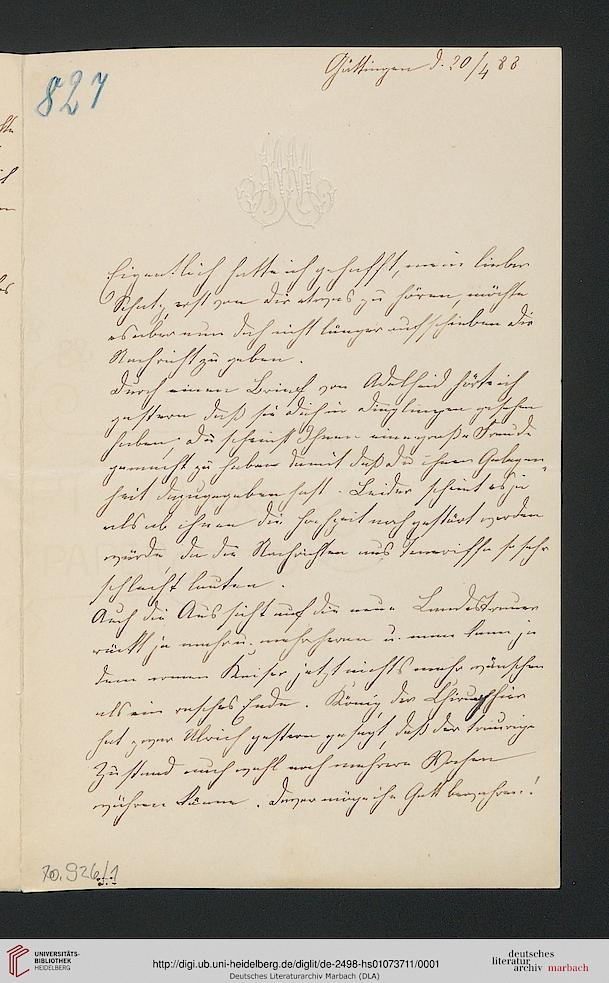 827
Göttingen d. 20/4 88
Eigentlich hatte ich gehofft, mein lieber
Schatz, erst von dir etwas zu hören, möchte
es aber nun doch nicht länger aufschieben dir
Nachricht zu geben.
Durch einen Brief von Adelheid hörte ich
gestern daß sie dich in gesehen
haben; du scheinst Ihnen eine große Freude
gemacht zu haben damit daß du ihnen Gelegen-
heit dazu gegeben hast. Leider scheint es ja
als ob ihnen die Hochzeit noch gestört werden
würde, da die Nachrichten aus Teneriffa so sehr
schlecht lauten.
Auch die Aussicht auf die neue Landestrauer
rückt ja mehr u. mehr heran u. man kann ja
dem armen Kaiser jetzt nichts mehr wünschen
als ein rasches Ende. König der Chirurg hier
hat zwar Ulrich gestern gesagt, daß der traurige
Zustand auch wohl noch mehrere Wochen
währen könne. Davor möge ihn Gott bewahren!
70.926/1
UNIVERSITÄTS-
BIBLIOTHEK
HEIDELBERG
http://digi.ub.uni-heidelberg.de/diglit/de-2498-hs01073711/0001
Deutsches Literaturarchiv Marbach (DLA)
deutsches
literatur
archiv marbach